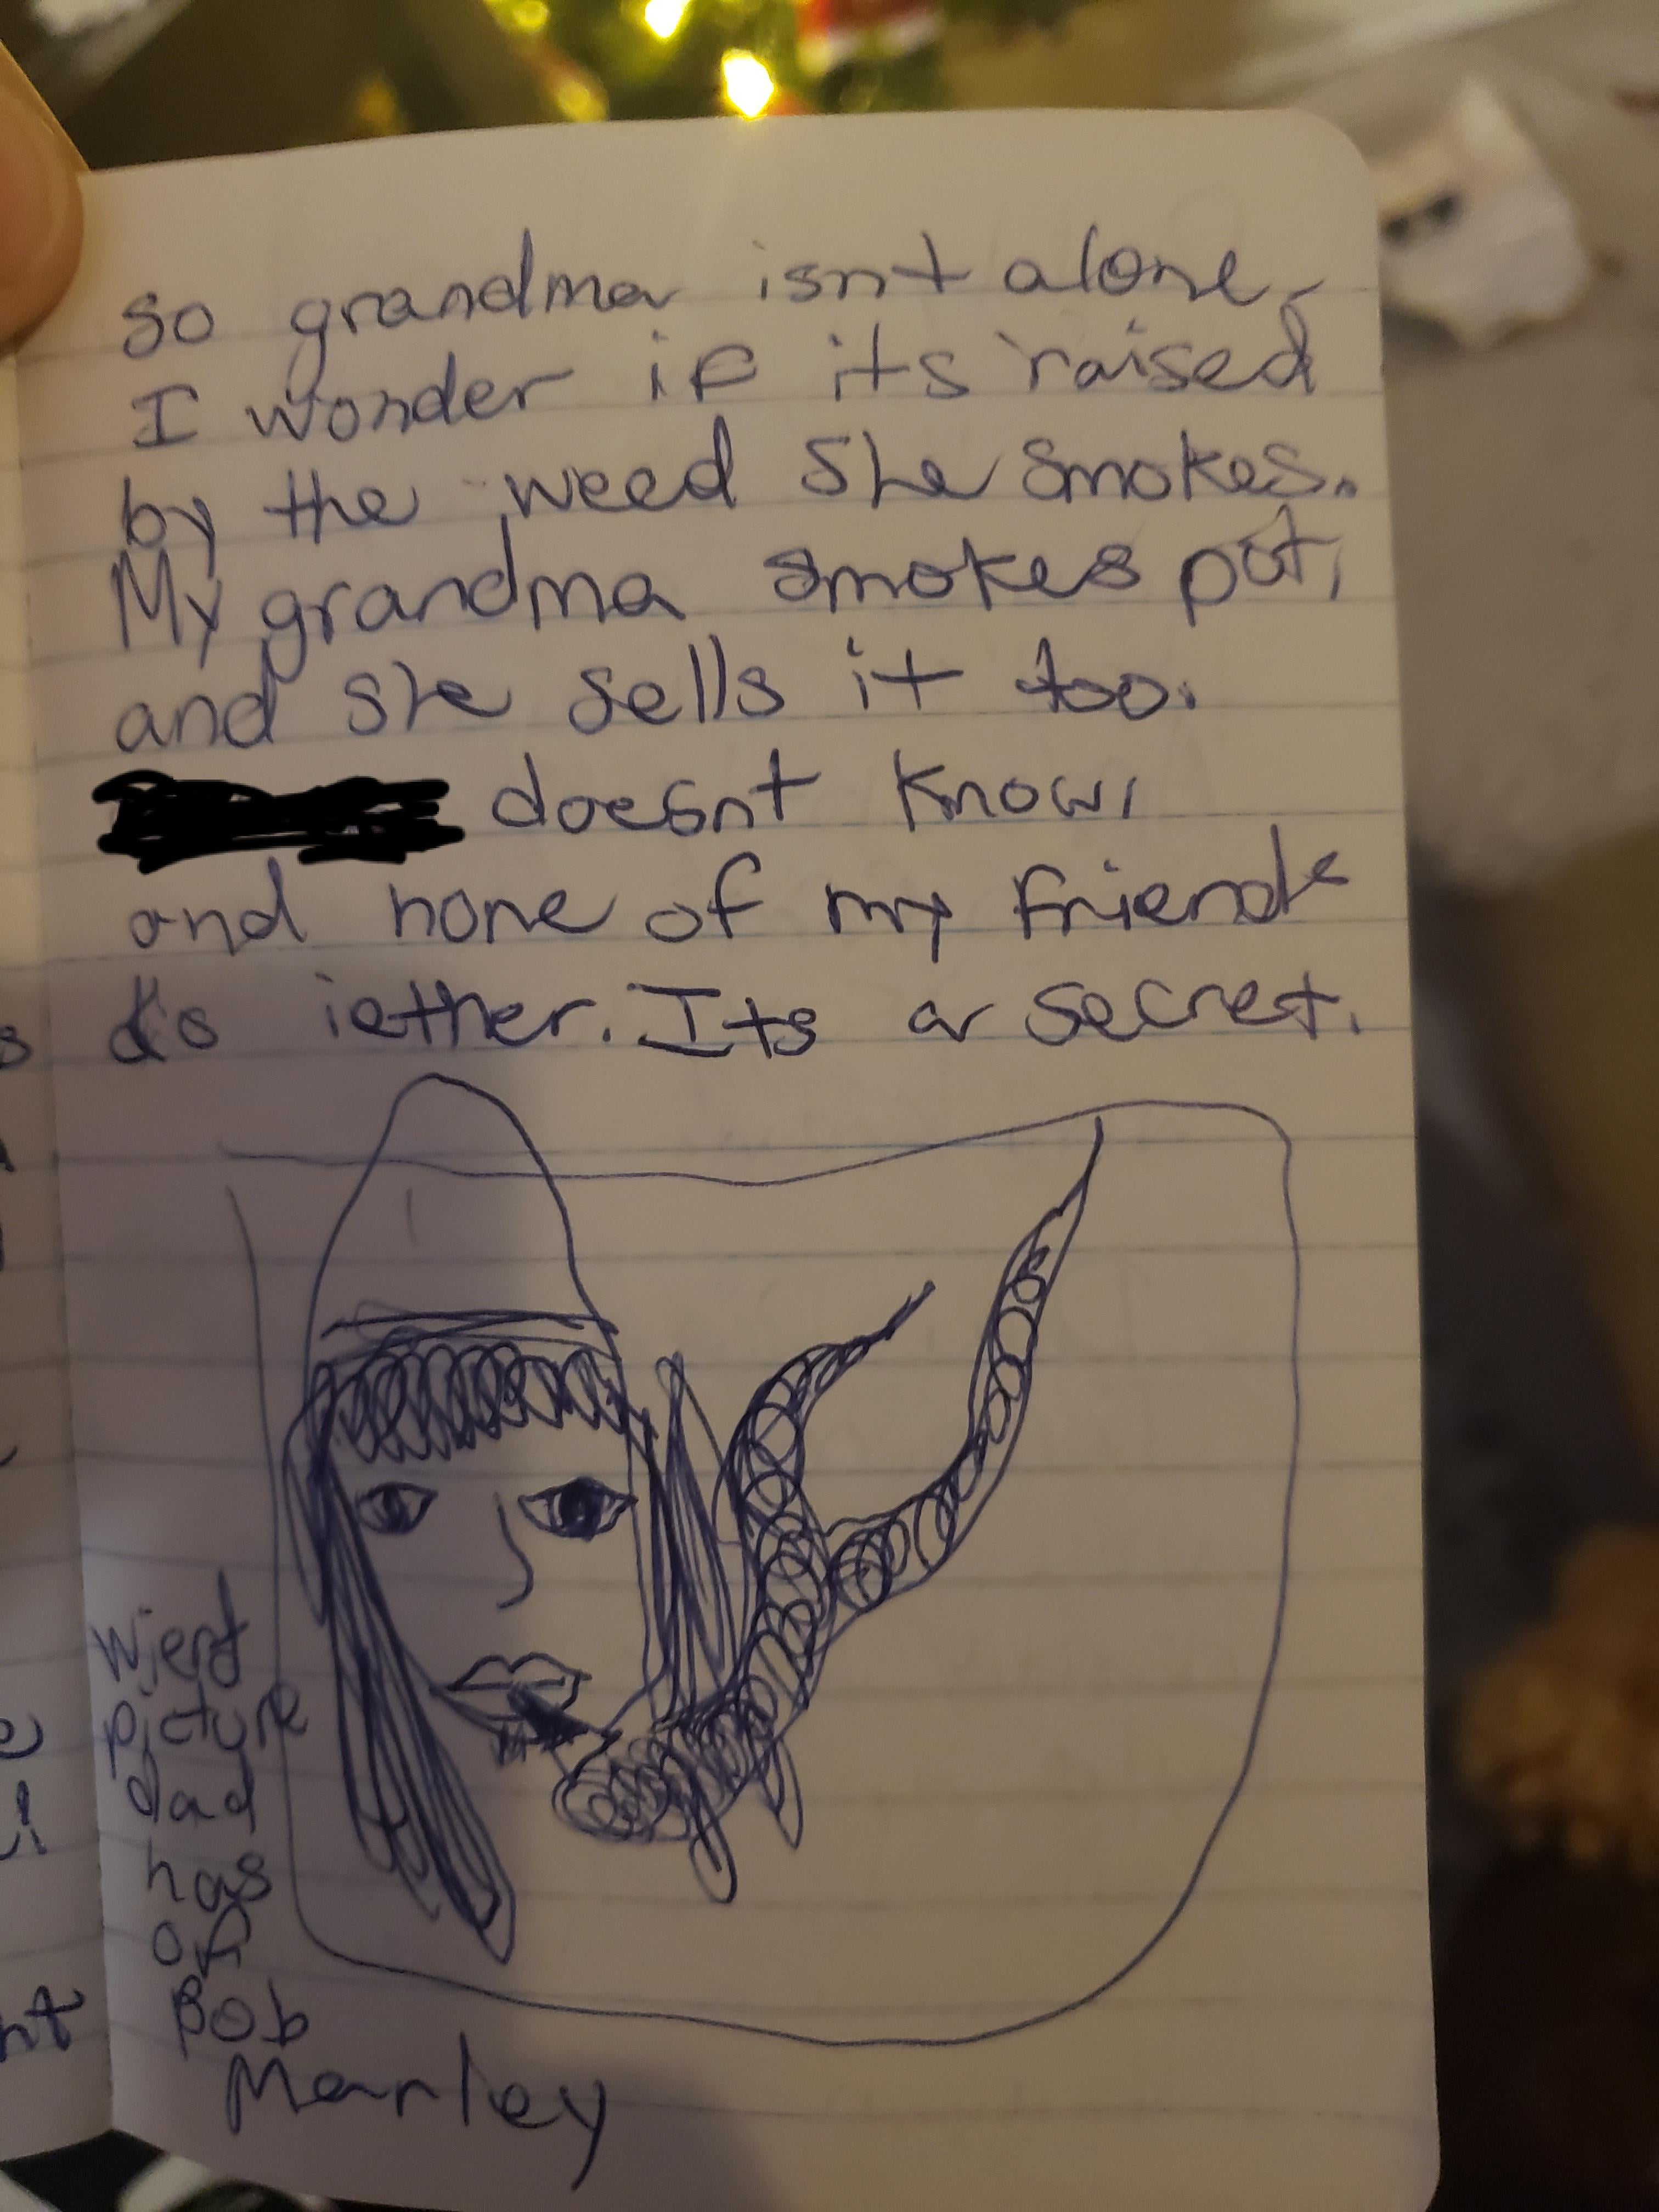 so grandma isnt alone,
I wonder if its raised
by the weed she smokes.
My grandma smokes pot,
and she sells it too.
doesnt know,
and none of my friends
do iether. Its a secret.
wierd
picture
dad
has
of
Bob
Marley